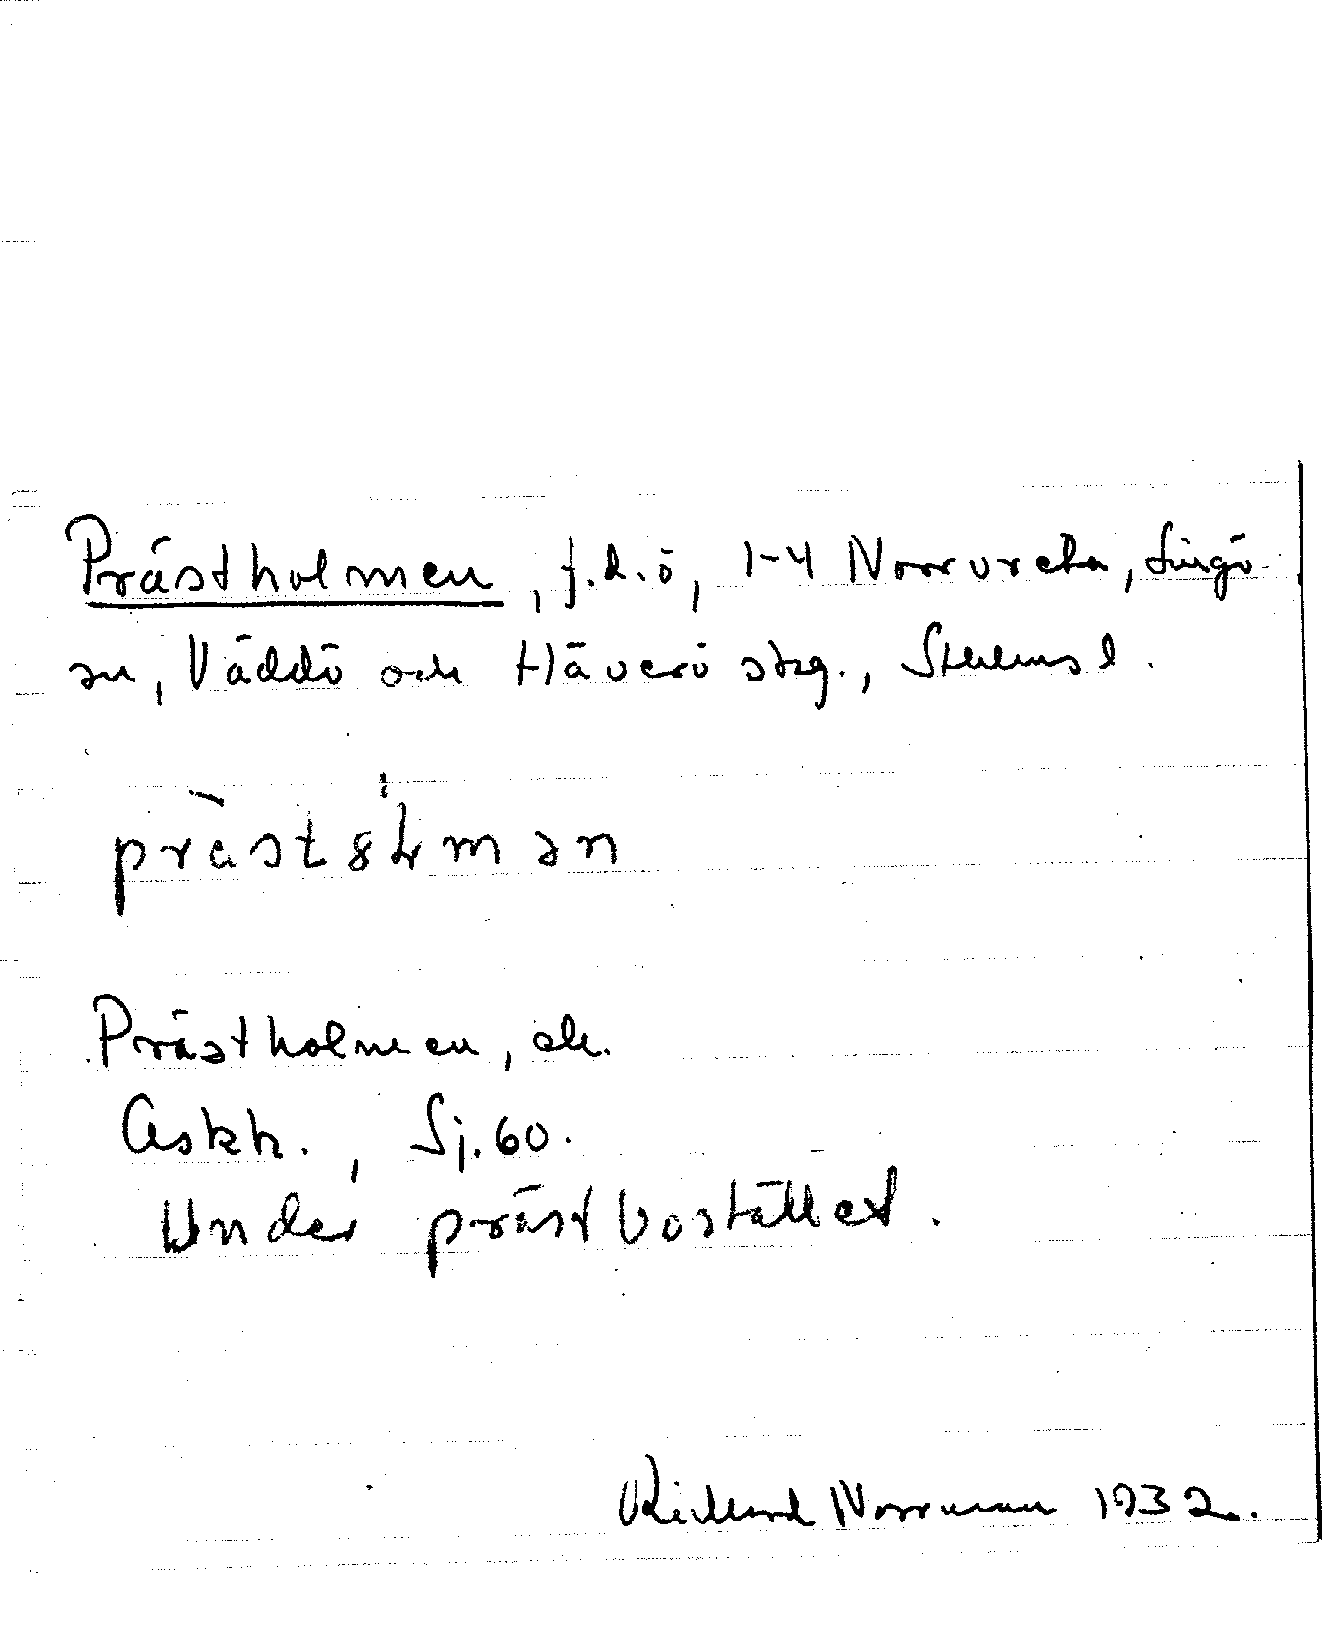 Prästholmen, f.d.ö, 1-4 Norrvreta, Singö
sn, Väddö och Häverö skg., Sthlms l.
prästholmen, ek.
Askh., Sj. 60.
Under prästbostället.
Richard Norrman 1932.